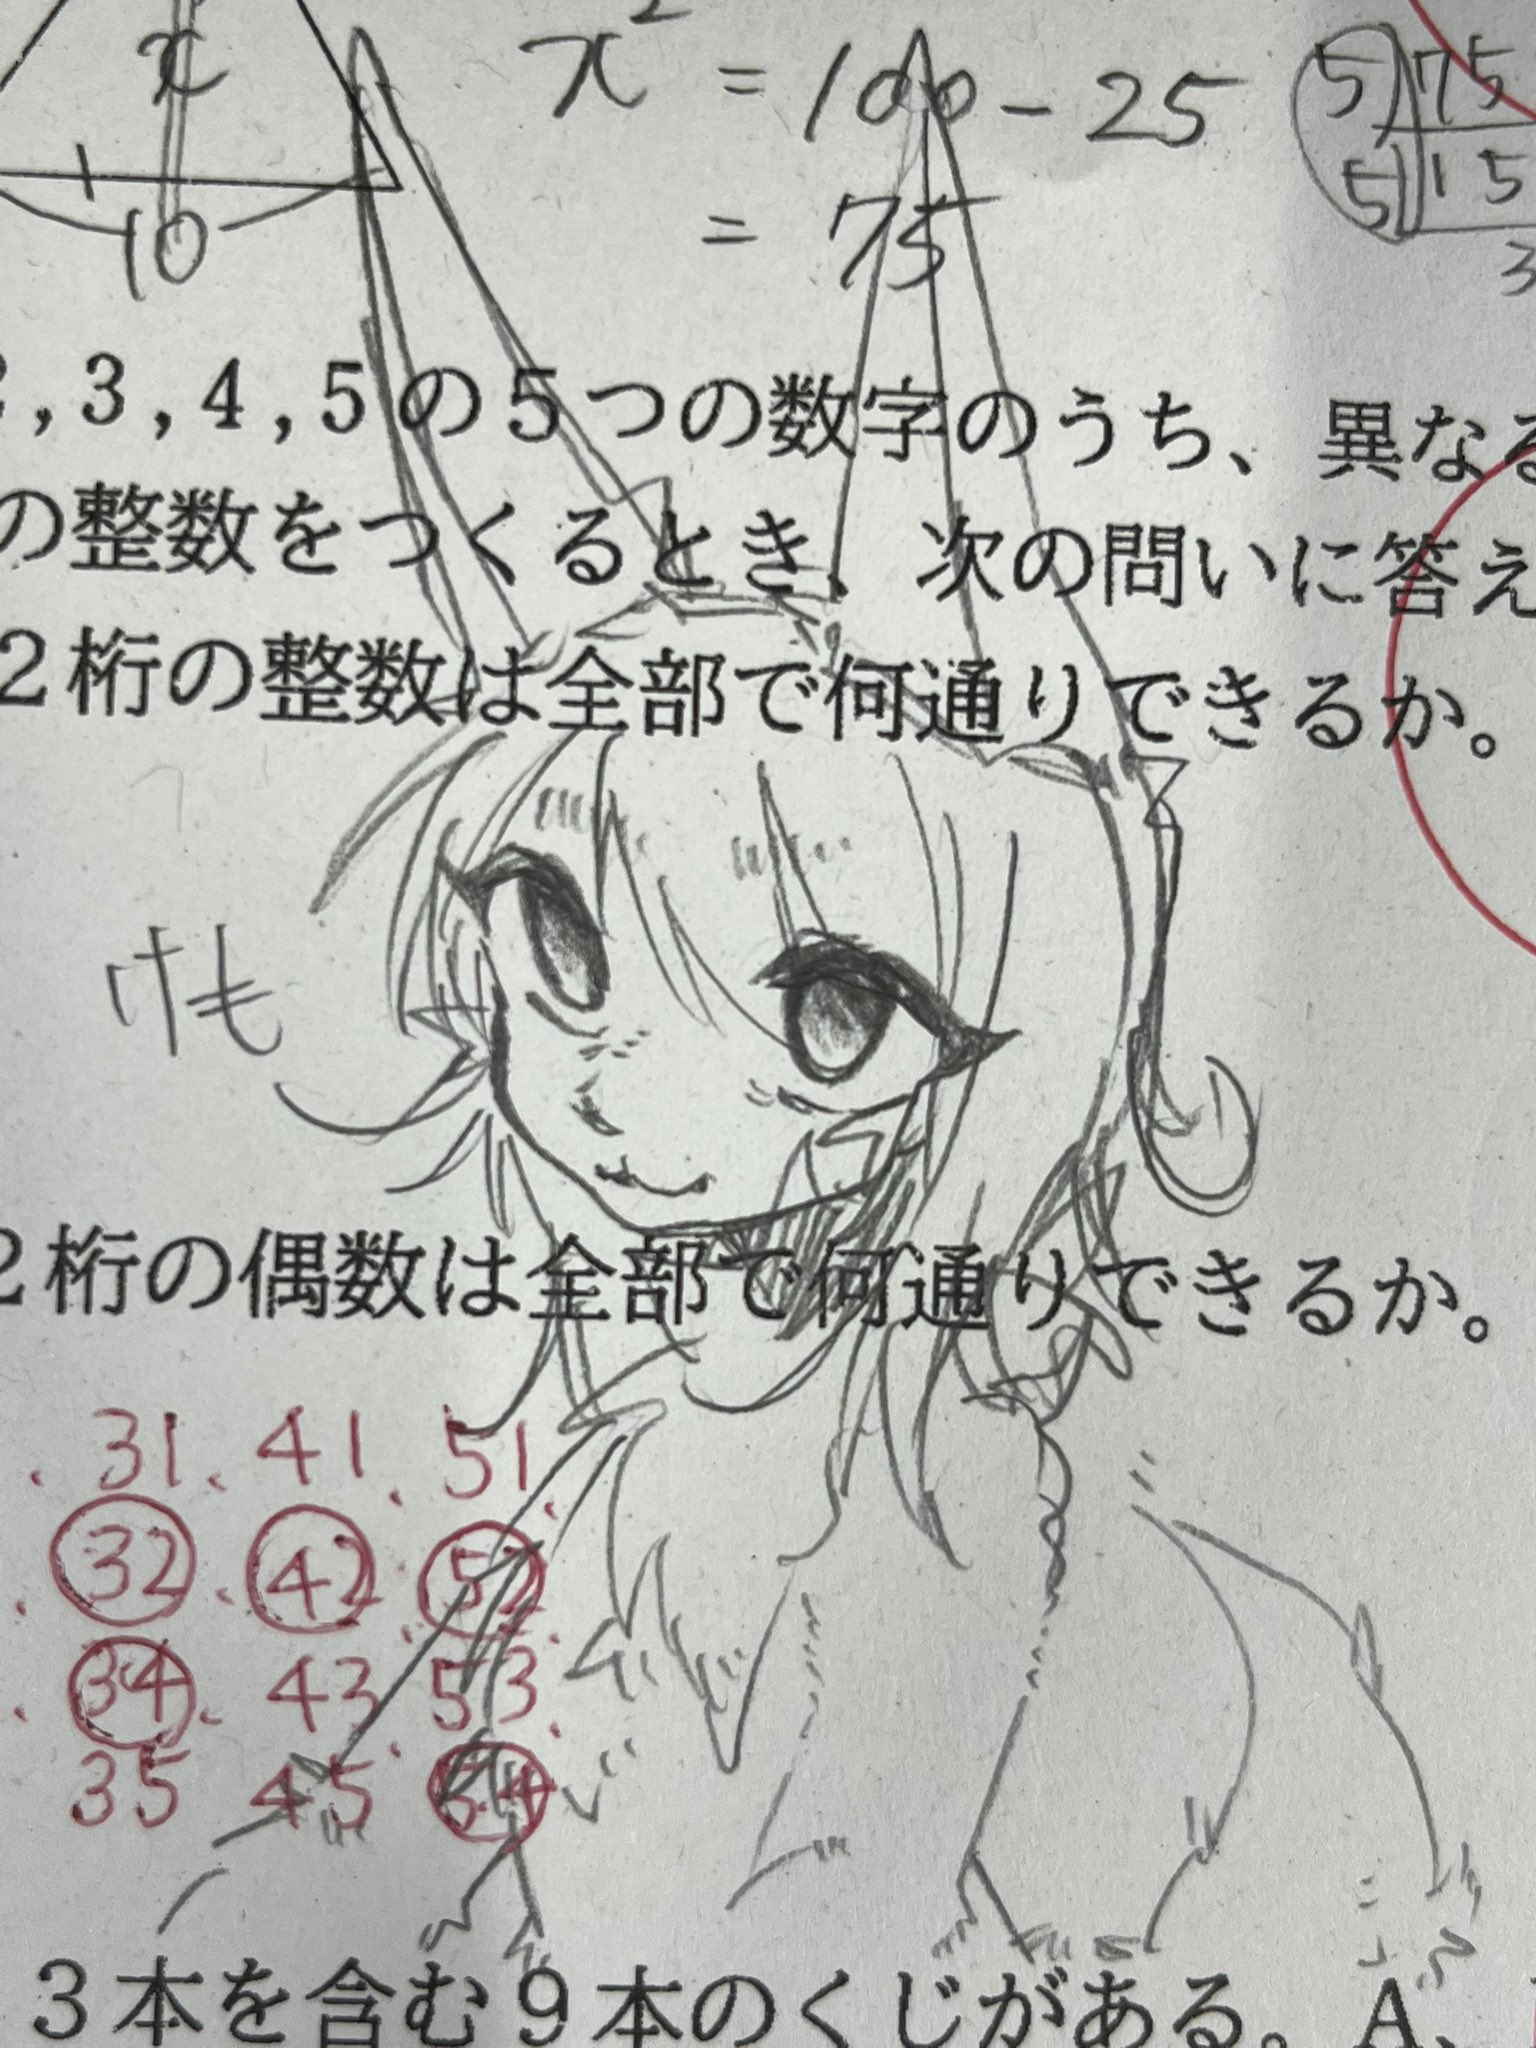 x
x² = 100 - 25
5)75
5)15
3
10
= 75
,3,4,5の5つの数字のうち、異なる
の整数をつくるとき、次の問いに答え
2桁の整数は全部で何通りできるか。
けも
2桁の偶数は全部で何通りできるか。
. 31. 41. 51.
. 32. 42. 52.
. 34. 43. 53.
35 45 54
3本を含む9本のくじがある。A、